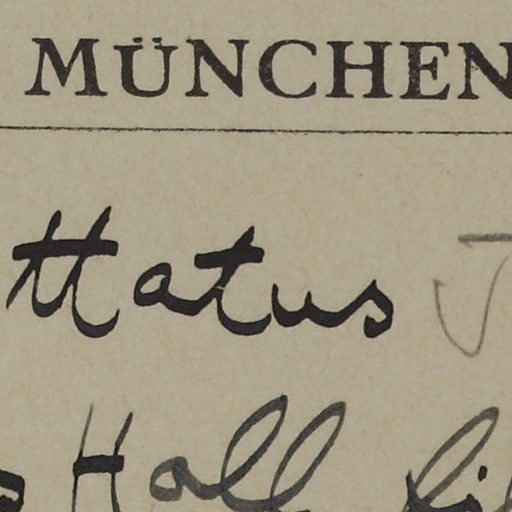 MÜNCHEN
ttatus J
Hall